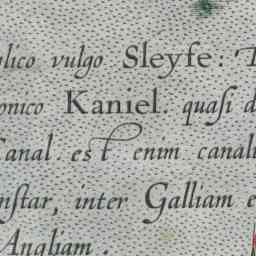 vulgo Sleyfe:
Kaniel. quaſi
Canal. est enim canal
inſtar, inter Galliam
Angliam.